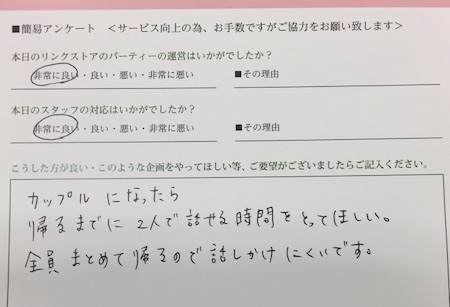 ■簡易アンケート　＜サービス向上の為、お手数ですがご協力をお願い致します＞
本日のリンクストアのパーティーの運営はいかがでしたか？
非常に良い・良い・悪い・非常に悪い　■その理由
本日のスタッフの対応はいかがでしたか？
非常に良い・良い・悪い・非常に悪い　■その理由
こうした方が良い・このような企画をやってほしい等、ご要望がございましたらご記入ください。
カップルになったら
帰るまでに2人で話せる時間をとってほしい。
全員まとめて帰るので話しかけにくいです。